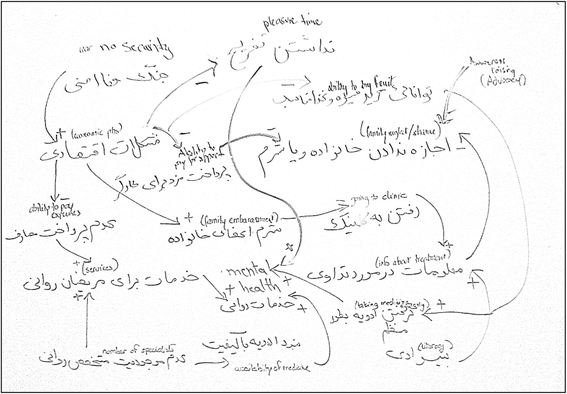 pleasure time
no security
نداشتن تفریح
جنگ و نا امنی
Awareness
raising
(Advocacy)
ability to buy fruit
توانائی خرید میوه و غذا مناسب
+ (economic pbs)
مشکلات اقتصادی
Ability to
pay for support
پرداخت مزد برای
(family neglect/shame)
اجازه ندادن خانواده و یا شرم
ability to pay
expenses
عدم پرداخت مصارف
+ (family embarrassment)
شرم اعضای خانواده
going to clinic
رفتن به کلینیک
+
+ (services)
خدمات برای مریضان روانی
+
mental
+ health +
خدمات روانی
+
(info about treatment)
معلومات در مورد تداوی
+
(taking medicine
گرفتن ادویه بطور
منظم
+
number of specialists
عدم موجودیت متخصص روانی
availability of medicine
بیسوادی